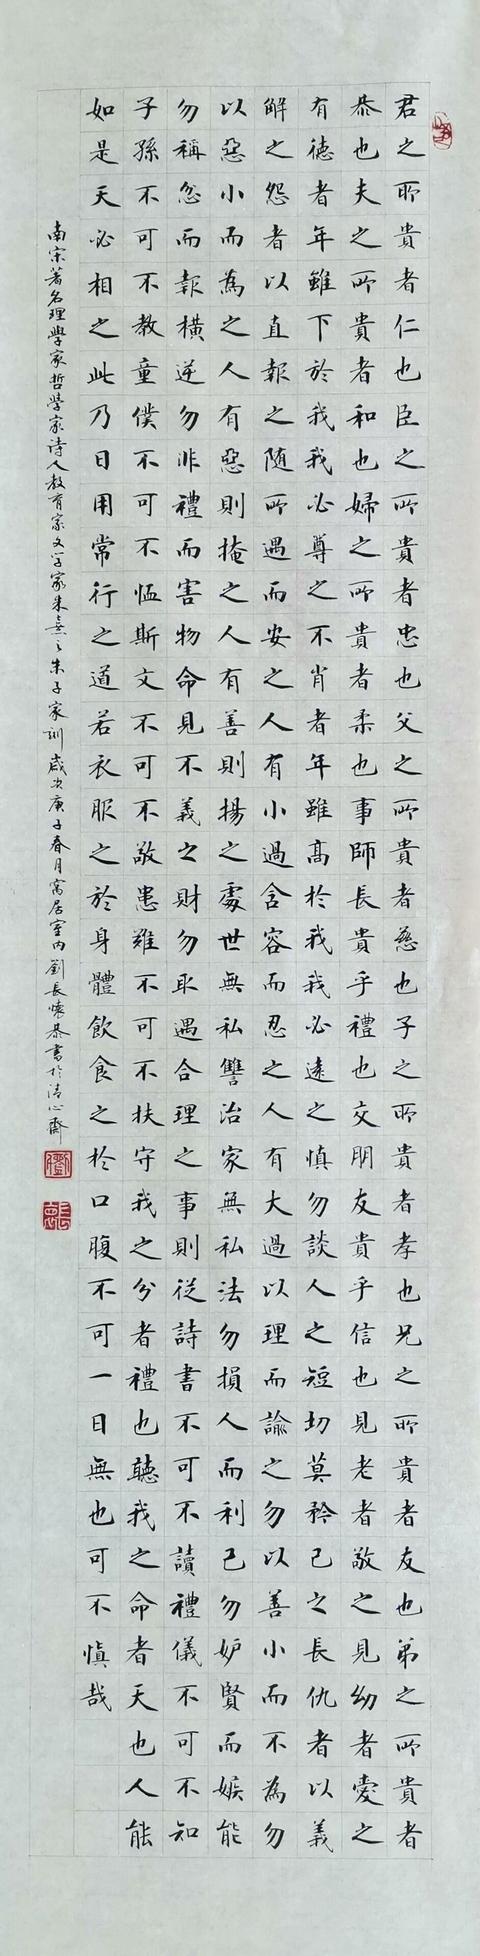 君之所貴者仁也臣之所貴者忠也父之所貴者慈也子之所貴者孝也兄之所貴者友也弟之所貴者
恭也夫之所貴者和也婦之所貴者柔也事師長貴乎禮也交朋友貴乎信也見老者敬之見幼者愛之
有德者年雖下於我我必尊之不肖者年雖高於我我必遠之慎勿談人之短切莫矜己之長仇者以義
解之怨者以直報之随所遇而安之人有小過含容而忍之人有大過以理而諭之勿以善小而不為勿
以惡小而為之人有惡則掩之人有善則揚之處世無私讐治家無私法勿損人而利己勿妒賢而嫉能
勿稱忿而報橫逆勿非禮而害物命見不義之財勿取遇合理之事則從詩書不可不讀禮儀不可不知
子孫不可不教童僕不可不恤斯文不可不敬患難不可不扶守我之分者禮也聽我之命者天也人能
如是天必相之此乃日用常行之道若衣服之於身體飲食之於口腹不可一日無也可不慎哉
南宋著名理學家哲學家詩人教育家文学家朱熹之朱子家訓 歲次庚子春月寓居室内劉長懷恭書於清心齋